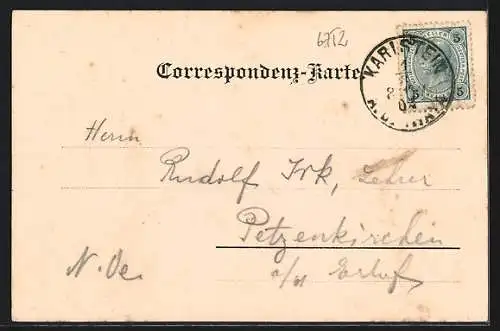 6712
Correspondenz-Karte
KARLSTEIN
5 5
Herrn
Rudolf Irk, Lehrer
Petzenkirchen
N. Oe. a/d Erlaf